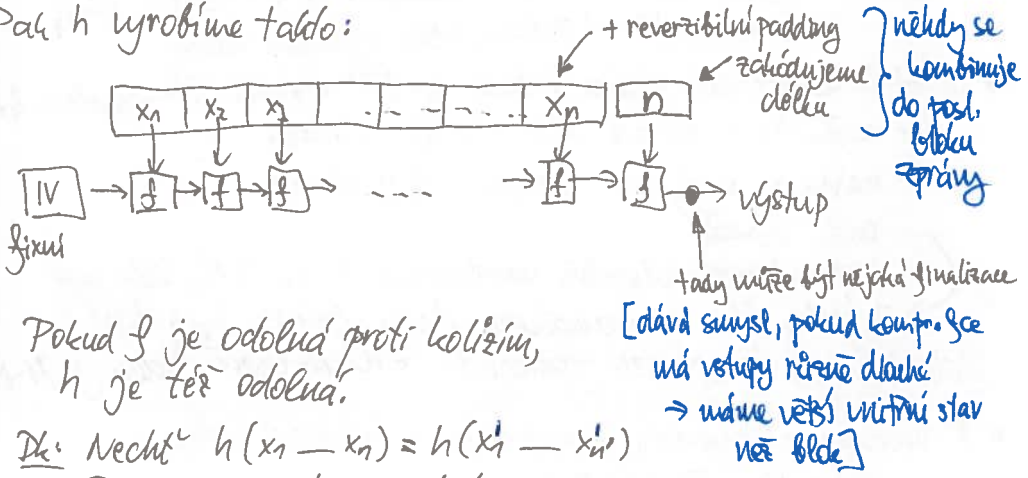 Pak h vyrobíme takto:
+ reverzibilní padding
zakódujeme
délku
někdy se
kombinuje
do posl.
bloku
zprávy
x1 x2 x3 ... - - - ... xn n
IV → f → f → f → - - - → f → f → výstup
fixní
tady může být nějaká finalizace
[dává smysl, pokud kompr. fce
má vstupy různě dlouhé
→ máme větší vnitřní stav
než blok]
Pokud f je odolná proti kolizím,
h je též odolná.
Dk: Nechť h(x1 — xn) = h(x'1 — x'n')